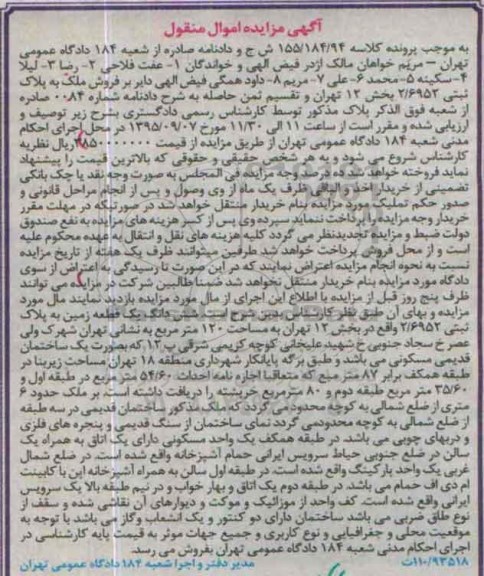 آگهی مزایده اموال منقول
به موجب پرونده کلاسه ۱۵۵/۱۸۴/۹۴ ش ج و دادنامه صادره از شعبه ۱۸۴ دادگاه عمومی
تهران – مریم خواهان مالک ازدر فیض الهی و خواندگان ۱- عفت فلاحی ۲- رضا ۳- لیلا
۴- سکینه ۵- محمد ۶- علی ۷- مریم ۸- داود همگی فیض الهی دایر بر فروش ملک به پلاک
ثبتی ۲/۶۹۵۲ بخش ۱۲ تهران و تقسیم ثمن حاصله به شرح دادنامه شماره ۰۰۸۴ صادره
از شعبه فوق الذکر پلاک مذکور توسط کارشناس رسمی دادگستری بشرح زیر توصیف و
ارزیابی شده و مقرر است از ساعت ۱۱ الی ۱۱/۳۰ مورخ ۱۳۹۵/۰۹/۰۷ در محل اجرای احکام
مدنی شعبه ۱۸۴ دادگاه عمومی تهران از طریق مزایده از قیمت ریال نظریه
کارشناس شروع می شود و به هر شخص حقیقی و حقوقی که بالاترین قیمت را پیشنهاد
نماید فروخته خواهد شد ده درصد وجه مزایده فی المجلس به صورت وجه نقد یا چک بانکی
تضمینی از خریدار اخذ و الباقی ظرف یک ماه از وی وصول و پس از انجام مراحل قانونی و
صدور حکم تملیک مورد مزایده بنام خریدار منتقل خواهد شد در صورتیکه در مهلت مقرر
خریدار وجه مزایده را پرداخت ننماید سپرده وی پس از کسر هزینه های مزایده به نفع صندوق
دولت ضبط و مزایده تجدیدنظر می گردد کلیه هزینه های نقل و انتقال به عهده محکوم علیه
است و از محل فروش پرداخت خواهد شد طرفین میتوانند ظرف یک هفته از تاریخ مزایده
نسبت به نحوه انجام مزایده اعتراض نمایند که در این صورت تا رسیدگی به اعتراض از سوی
دادگاه مورد مزایده بنام خریدار منتقل نخواهد شد ضمنا طالبین شرکت در مزایده می توانند
ظرف پنج روز قبل از مزایده با اطلاع این اجرای از مال مورد مزایده بازدید نمایند مال مورد
مزایده و بهای آن طبق نظر کارشناس بدین شرح است ششدانگ یک قطعه زمین به پلاک
ثبتی ۲/۶۹۵۲ واقع در بخش ۱۲ تهران به مساحت ۱۲۰ متر مربع به نشانی تهران شهرک ولی
عصر خ سجاد جنوبی خ شهید علیخانی کوچه کریمی شرقی پ ۱۲ که بصورت یک ساختمان
قدیمی مسکونی می باشد و طبق برگه پایانکار شهرداری منطقه ۱۸ تهران مساحت زیربنا در
طبقه همکف برابر ۸۷ متر مربع که متعاقبا اجازه نامه احداث ۵۴/۶۰ متر مربع در طبقه اول و
۳۵/۶۰ متر مربع طبقه دوم و ۸۰ مترمربع خرپشته را دریافت داشته است. بر ملک حدود ۶
متری از ضلع شمالی به کوچه محدودمی گردد که ملک مذکور ساختمان قدیمی در سه طبقه
از ضلع شمالی به کوچه محدودمی گردد نمای ساختمان از سنگ قدیمی و پنجره های فلزی
و دربهای چوبی می باشد. در طبقه همکف یک واحد مسکونی دارای یک اتاق به همراه یک
سالن در ضلع جنوبی حیاط سرویس ایرانی حمام آشپزخانه واقع شده است. در ضلع شمال
غربی یک واحد پارکینگ واقع شده است. در طبقه اول سالن به همراه آشپزخانه اپن با کابینت
ام دی اف حمام می باشد. در طبقه دوم یک اتاق و بهار خواب و در نیم طبقه بالا یک سرویس
ایرانی واقع شده است. کف واحد از موزائیک و موکت و دیوارهای آن نقاشی شده و سقف از
نوع طاق ضربی می باشد ساختمان دارای دو کنتور و یک انشعاب وگاز می باشد با توجه به
موقعیت محلی و جغرافیایی و نوع کاربری و جمیع جهات موثر به قیمت پایه کارشناسی در
اجرای احکام مدنی شعبه ۱۸۴ دادگاه عمومی تهران بفروش می رسد.
۱۱۰/۹۳۵۱۸ت
مدیر دفتر و اجرا شعبه ۱۸۴ دادگاه عمومی تهران